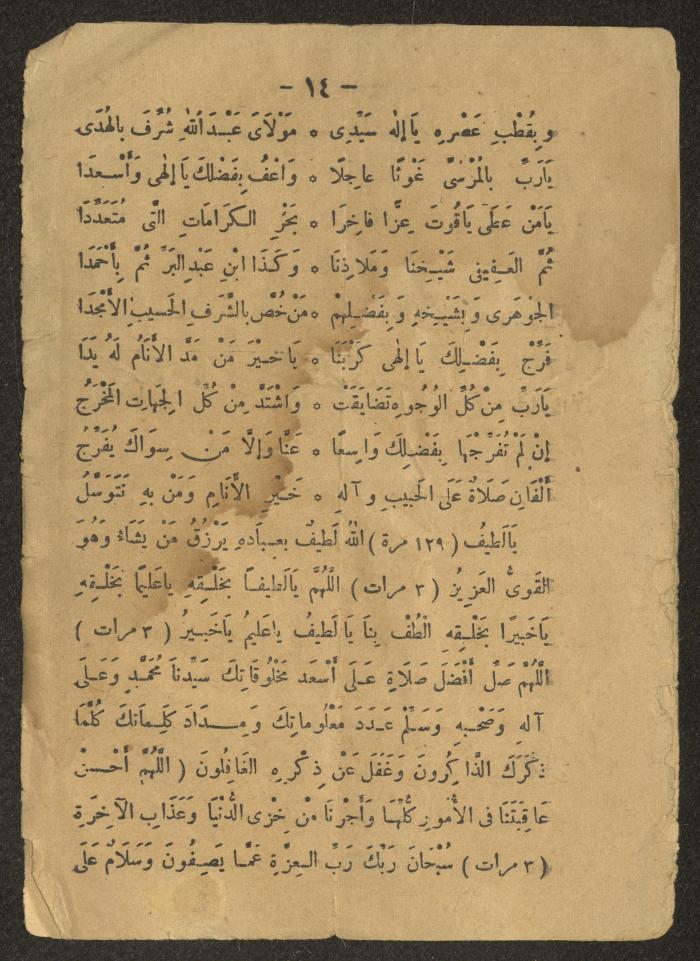 - ١٤ -
وبِقُطْبِ عَصْرِهِ يَا إِلٰه سَيِّدِى ۰ مَوْلَاىَ عَبْدَ اللهِ شُرِّفَ بِالْهُدَى
يَارَبِّ بالمُرْسَىِّ غَوْثًا عاجِلًا ۰ وَاعْفُ بِفَضْلِكَ يَا إِلٰهى وَأَسْعَدَا
يَامَنْ عَطَى يَاقُوتَ عِزًّا فاخِرَا ۰ بَحْرِ الكَرَامَاتِ الَّتى مُتَعَدِّدَا
ثُمَّ العَفِيفى شَيْخِنَا وَمَلَاذِنَا ۰ وَكَذَا ابْنِ عَبْدِ البَرِّ ثُمَّ بِأَحْمَدَا
الجَوْهَرِى وَبِشَيْخِهِ وَبِفَضْلِهِمْ ۰ مَنْ خُصَّ بالشَّرَفِ الحَسِيبِ الأَمْجَدَا
فَرِّجْ بِفَضْلِكَ يَا إِلٰهى كَرْبَنَا ۰ يَا خَيْرَ مَنْ مَدَّ الأَنَامُ لَهُ يَدَا
يَارَبِّ مِنْ كُلِّ الوُجُوهِ تَضَايَقَتْ ۰ وَاشْتَدَّ مِنْ كُلِّ الجِهَاتِ المَخْرَجُ
إِنْ لَمْ تُفَرِّجْهَا بِفَضْلِكَ وَاسِعًا ۰ عَنَّا وَإِلَّا مَنْ سِوَاكَ يُفَرِّجُ
أَلْفَانِ صَلَاةً عَلَى الحَبِيبِ وآلِهِ ۰ خَيْرِ الأَنَامِ وَمَنْ بِهِ نَتَوَسَّلُ
يَالَطِيفُ ( ١٢٩ مرة ) اللهُ لَطِيفٌ بعِبادِهِ يَرْزُقُ مَنْ يَشَاءُ وَهُوَ
القَوِىُّ العَزِيزُ ( ٣ مرات ) اللَّهُمَّ يَالَطِيفًا بِخَلْقِهِ ياعَلِيمًا بِخَلْقِهِ
يَاخَبِيرًا بِخَلْقِهِ الْطُفْ بِنَا يَالَطِيفُ ياعَلِيمُ يَاخَبِيرُ ( ٣ مرات )
اللَّهُمَّ صَلِّ أَفْضَلَ صَلَاةٍ عَلَى أَسْعَدِ مَخْلُوقَاتِكَ سَيِّدِنَا مُحَمَّدٍ وَعَلَى
آلِهِ وَصَحْبِهِ وَسَلِّمْ عَدَدَ مَعْلُومَاتِكَ وَمِدَادَ كَلِمَاتِكَ كُلَّمَا
ذَكَرَكَ الذَّاكِرُونَ وَغَفَلَ عَنْ ذِكْرِهِ الغَافِلُونَ ( اللَّهُمَّ أَحْسِنْ
عَاقِبَتَنَا فى الأُمُورِ كُلِّهَا وَأَجِرْنَا مِنْ خِزْىِ الدُّنْيَا وَعَذَابِ الآخِرَةِ
( ٣ مرات ) سُبْحَانَ رَبِّكَ رَبِّ العِزَّةِ عَمَّا يَصِفُونَ وَسَلَامٌ عَلَى